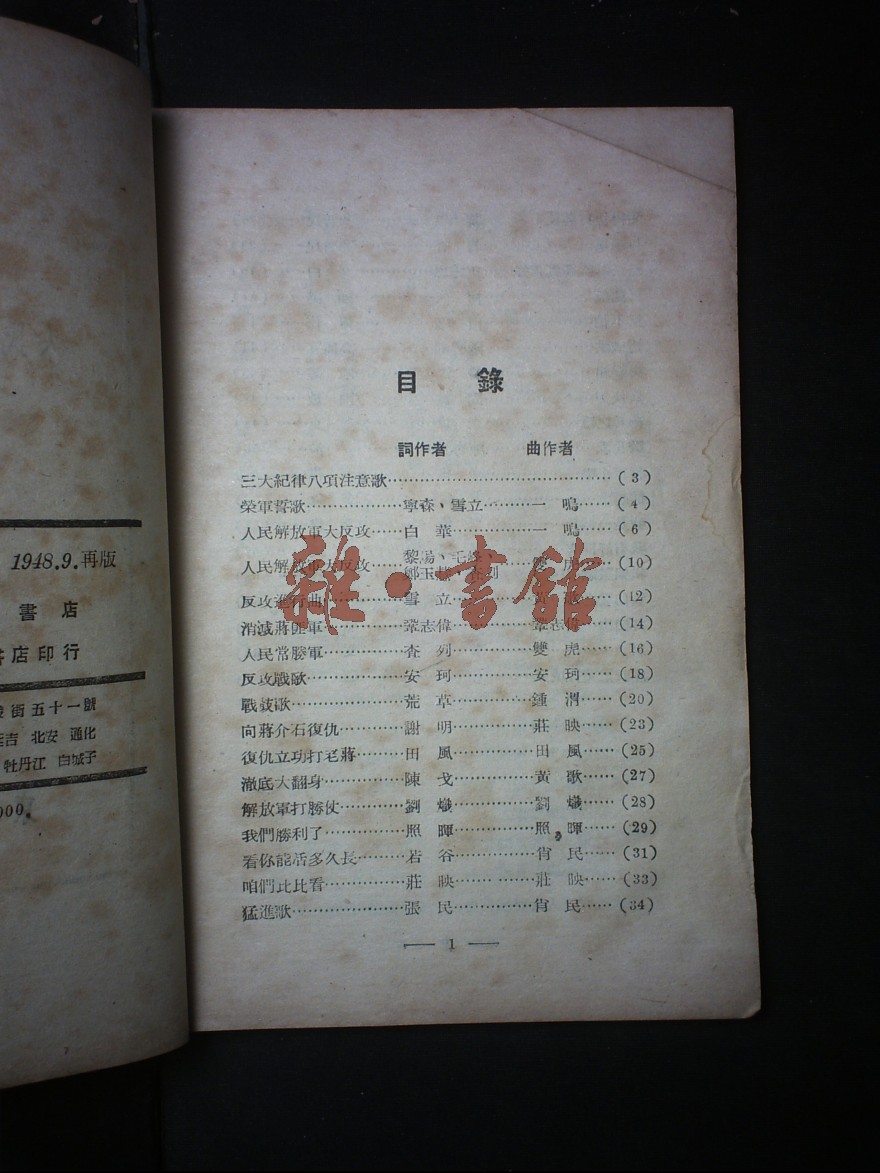 1948.9.再版
書店
書店印行
街五十一號
吉 北安 通化
牡丹江 白城子
000.
目錄
詞作者 曲作者
三大紀律八項注意歌……(3)
榮軍誓歌……寧森、雪立……一鳴……(4)
人民解放軍大反攻……白華……一鳴……(6)
人民解放軍大反攻……黎湯、毛……虎……(10)
反攻進行曲……雪立……(12)
消滅蔣匪軍……鞏志偉……鞏志偉……(14)
人民常勝軍……杏列……雙虎……(16)
反攻戰歌……安珂……安珂……(18)
戰鼓歌……荒草……鍾渭……(20)
向蔣介石復仇……謝明……莊映……(23)
復仇立功打老蔣……田風……田風……(25)
澈底大翻身……陳戈……黃歌……(27)
解放軍打勝仗……劉熾……劉熾……(28)
我們勝利了……照暉……照暉……(29)
看你能活多久長……若谷……肖民……(31)
咱們比比看……莊映……莊映……(33)
猛進歌……張民……肖民……(34)
— 1 —
雜·書館